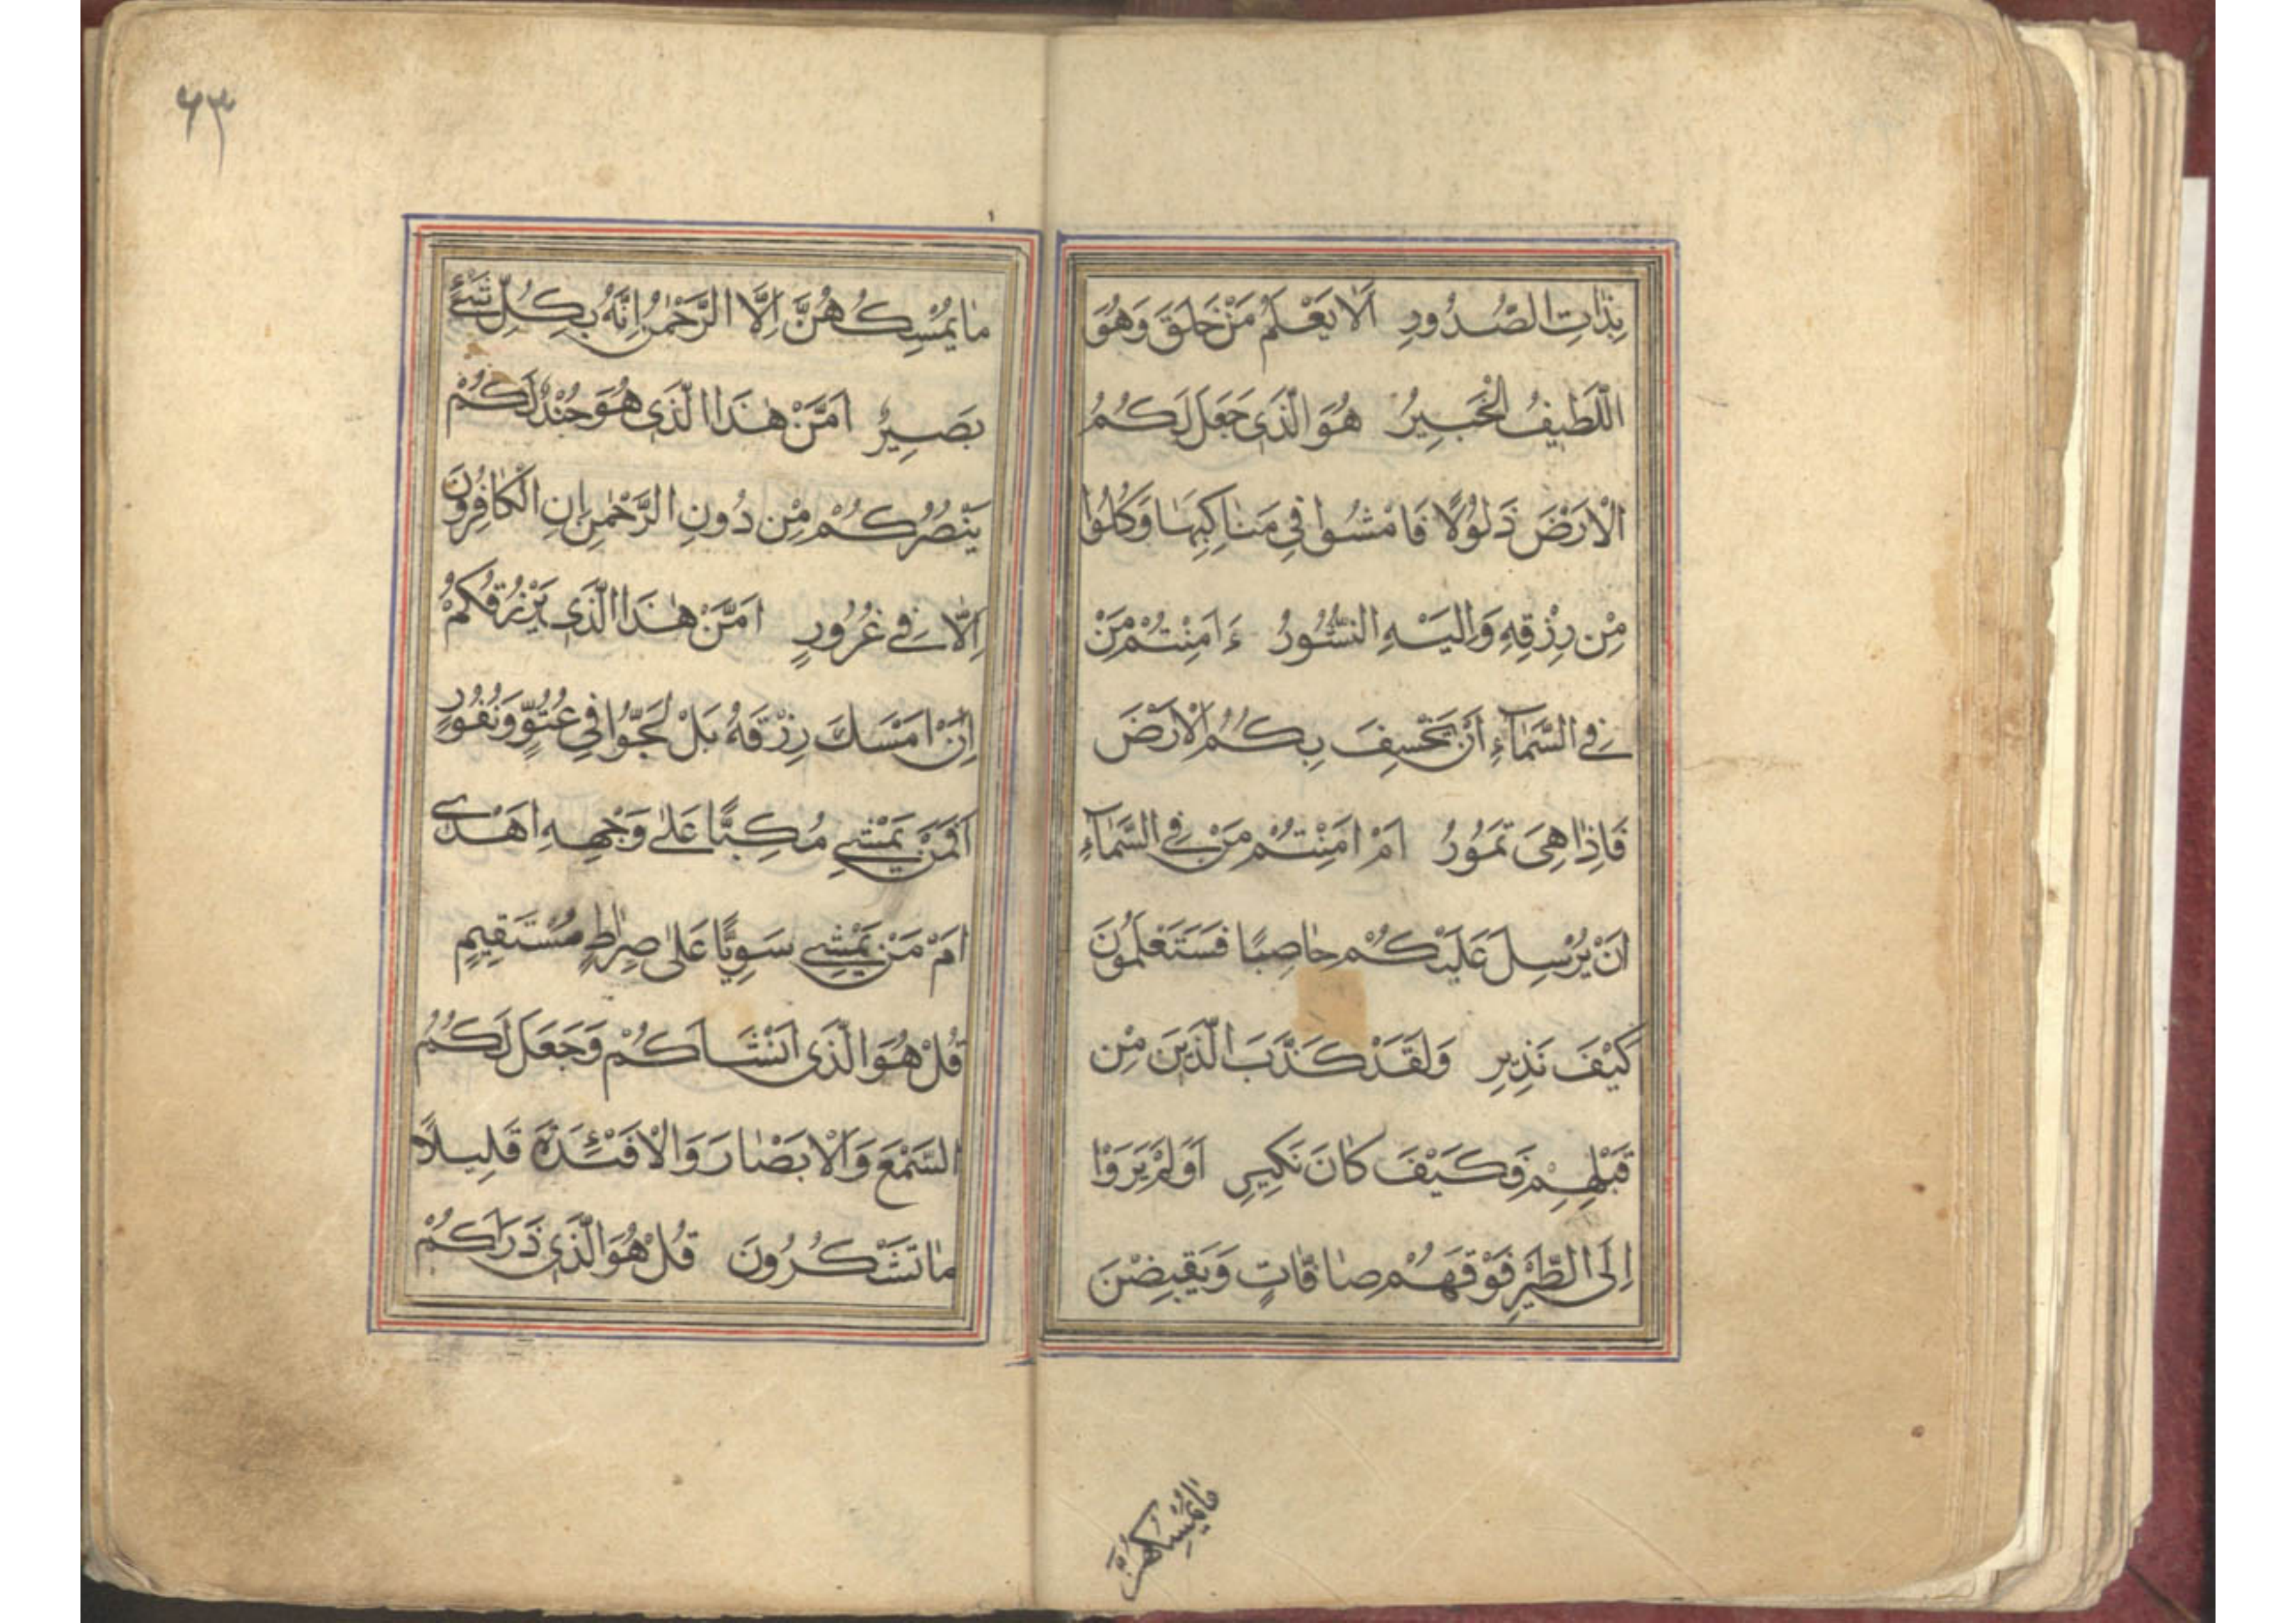 بِذٰاتِ الصُّدُورِ اَلٰا يَعْلَمُ مَنْ خَلَقَ وَهُوَ
اللَّطِيفُ الْخَبِيرُ هُوَ الَّذَى جَعَلَ لَكُمُ
الْاَرْضَ ذَلُولًا فَامْشُوا فِي مَنٰاكِبِهٰا وَكُلُوا
مِنْ رِزْقِهِ وَاِلَيْهِ النُّشُورُ ءَاَمِنْتُمْ مَنْ
فِي السَّمٰآءِ اَنْ يَخْسِفَ بِكُمُ الْاَرْضَ
فَاِذٰا هِىَ تَمُورُ اَمْ اَمِنْتُمْ مَنْ فِي السَّمٰآءِ
اَنْ يُرْسِلَ عَلَيْكُمْ حٰاصِبًا فَسَتَعْلَمُونَ
كَيْفَ نَذِيرِ وَلَقَدْ كَذَّبَ الَّذَينَ مِنْ
قَبْلِهِمْ فَكَيْفَ كٰانَ نَكِيرِ اَوَلَمْ يَرَوْا
اِلَى الطَّيْرِ فَوْقَهُمْ صٰافّٰاتٍ وَيَقْبِضْنَ
مٰا يُمْسِكُهُنَّ
٦٣
مٰا يُمْسِكُهُنَّ اِلَّا الرَّحْمٰنُ اِنَّهُ بِكُلِّ شَيْءٍ
بَصِيرٌ اَمَّنْ هٰذَا الَّذَى هُوَ جُنْدٌ لَكُمْ
يَنْصُرُكُمْ مِنْ دُونِ الرَّحْمٰنِ اِنِ الْكٰافِرُونَ
اِلّٰا فِي غُرُورٍ اَمَّنْ هٰذَا الَّذَى يَرْزُقُكُمْ
اِنْ اَمْسَكَ رِزْقَهُ بَلْ لَجُّوا فِي عُتُوٍّ وَنُفُورٍ
اَفَمَنْ يَمْشِي مُكِبًّا عَلىٰ وَجْهِهِ اَهْدىٰ
اَمْ مَنْ يَمْشِي سَوِيًّا عَلىٰ صِرٰاطٍ مُسْتَقِيمٍ
قُلْ هُوَ الَّذَى اَنْشَاَكُمْ وَجَعَلَ لَكُمُ
السَّمْعَ وَالْاَبْصٰارَ وَالْاَفْئِدَةَ قَلِيلًا
مٰا تَشْكُرُونَ قُلْ هُوَ الَّذَى ذَرَاَكُمْ